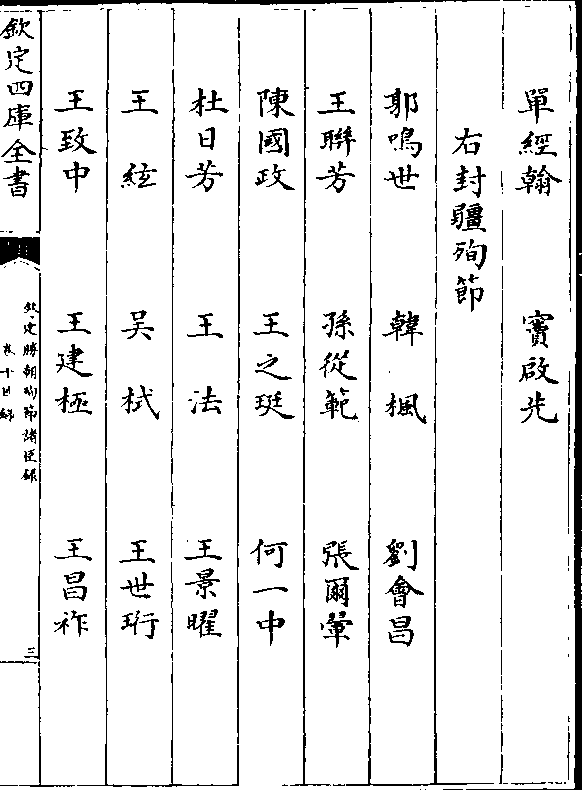 單經翰　竇啟先
右封疆殉節
郭鳴世　韓楓　劉會昌
王聯芳　孫從範　張爾翬
陳國政　王之珽　何一中
杜日芳　王法　王景曜
王絃　吳栻　王世珩
王致中　王建極　王昌祚
欽定四庫全書
欽定勝朝殉節諸臣錄
卷十目錄
三